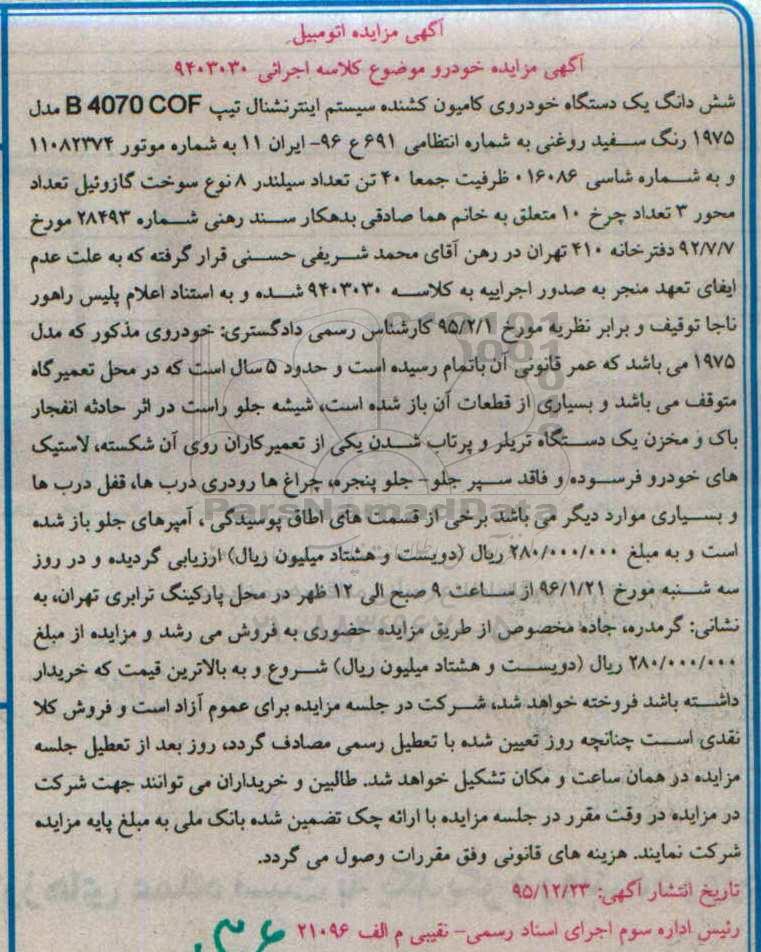 آگهی مزایده اتومبیل
آگهی مزایده خودرو موضوع کلاسه اجرائی ۹۴۰۳۰۳۰
شش دانگ یک دستگاه خودروی کامیون کشنده سیستم اینترنشنال تیپ B 4070 COF مدل
۱۹۷۵ رنگ سفید روغنی به شماره انتظامی ۶۹۱ع ۹۶- ایران ۱۱ به شماره موتور ۱۱۰۸۲۳۷۴
و به شماره شاسی ۰۱۶۰۸۶ ظرفیت جمعا ۴۰ تن تعداد سیلندر ۸ نوع سوخت گازوئیل تعداد
محور ۳ تعداد چرخ ۱۰ متعلق به خانم هما صادقی بدهکار سند رهنی شماره ۲۸۴۹۳ مورخ
۹۲/۷/۷ دفترخانه ۴۱۰ تهران در رهن آقای محمد شریفی حسنی قرار گرفته که به علت عدم
ایفای تعهد منجر به صدور اجراییه به کلاسه ۹۴۰۳۰۳۰ شده و به استناد اعلام پلیس راهور
ناجا توقیف و برابر نظریه مورخ ۹۵/۲/۱ کارشناس رسمی دادگستری: خودروی مذکور که مدل
۱۹۷۵ می باشد که عمر قانونی آن باتمام رسیده است و حدود ۵ سال است که در محل تعمیرگاه
متوقف می باشد و بسیاری از قطعات آن باز شده است، شیشه جلو راست در اثر حادثه انفجار
باک و مخزن یک دستگاه تریلر و پرتاب شدن یکی از تعمیرکاران روی آن شکسته، لاستیک
های خودرو فرسوده و فاقد سپر جلو- جلو پنجره، چراغ ها رودری درب ها، قفل درب ها
و بسیاری موارد دیگر می باشد برخی از قسمت های اطاق پوسیدگی، آمپرهای جلو باز شده
است و به مبلغ ۲۸۰/۰۰۰/۰۰۰ ریال (دویست و هشتاد میلیون ریال) ارزیابی گردیده و در روز
سه شنبه مورخ ۹۶/۱/۲۱ از ساعت ۹ صبح الی ۱۲ ظهر در محل پارکینگ ترابری تهران، به
نشانی: گرمدره، جاده مخصوص از طریق مزایده حضوری به فروش می رشد و مزایده از مبلغ
۲۸۰/۰۰۰/۰۰۰ ریال (دویست و هشتاد میلیون ریال) شروع و به بالاترین قیمت که خریدار
داشته باشد فروخته خواهد شد، شرکت در جلسه مزایده برای عموم آزاد است و فروش کلا
نقدی است چنانچه روز تعیین شده با تعطیل رسمی مصادف گردد، روز بعد از تعطیل جلسه
مزایده در همان ساعت و مکان تشکیل خواهد شد. طالبین و خریداران می توانند جهت شرکت
در مزایده در وقت مقرر در جلسه مزایده با ارائه چک تضمین شده بانک ملی به مبلغ پایه مزایده
شرکت نمایند. هزینه های قانونی وفق مقررات وصول می گردد.
تاریخ انتشار آگهی: ۹۵/۱۲/۲۳
رئیس اداره سوم اجرای اسناد رسمی- نقیبی م الف ۲۱۰۹۶
ParsNamadData